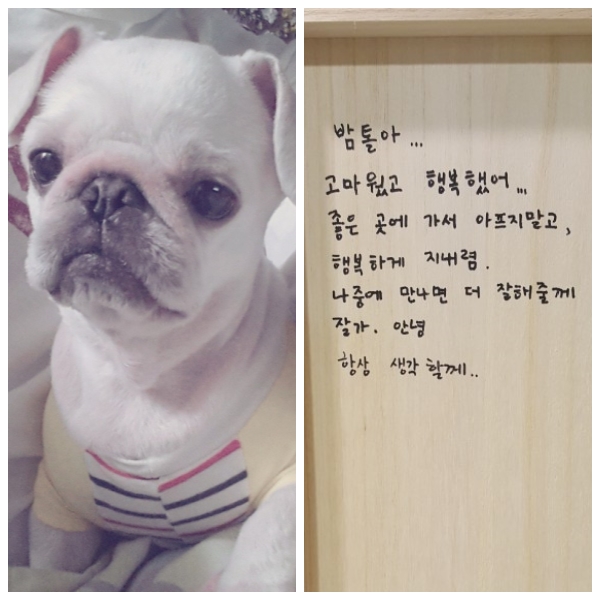 밤톨아...
고마웠고 행복했어...
좋은 곳에 가서 아프지말고,
행복하게 지내렴.
나중에 만나면 더 잘해줄께
잘가. 안녕
항상 생각할께..